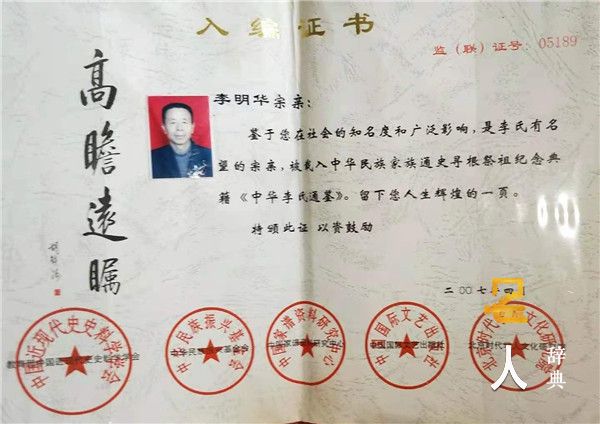 入编证书
监(联)证号:05189
高瞻遠瞩
李明华宗亲:
鉴于您在社会的知名度和广泛影响,是李氏有名
望的宗亲,被载入中华民族家族通史寻根祭祖纪念典
籍《中华李氏通鉴》。留下您人生辉煌的一页。
特颁此证 以资鼓励
二00七年四月
中国近现代史史料学学会
中华民族振兴基金会
中国家谱资料研究中心
中国国际文艺出版社
人
辞典